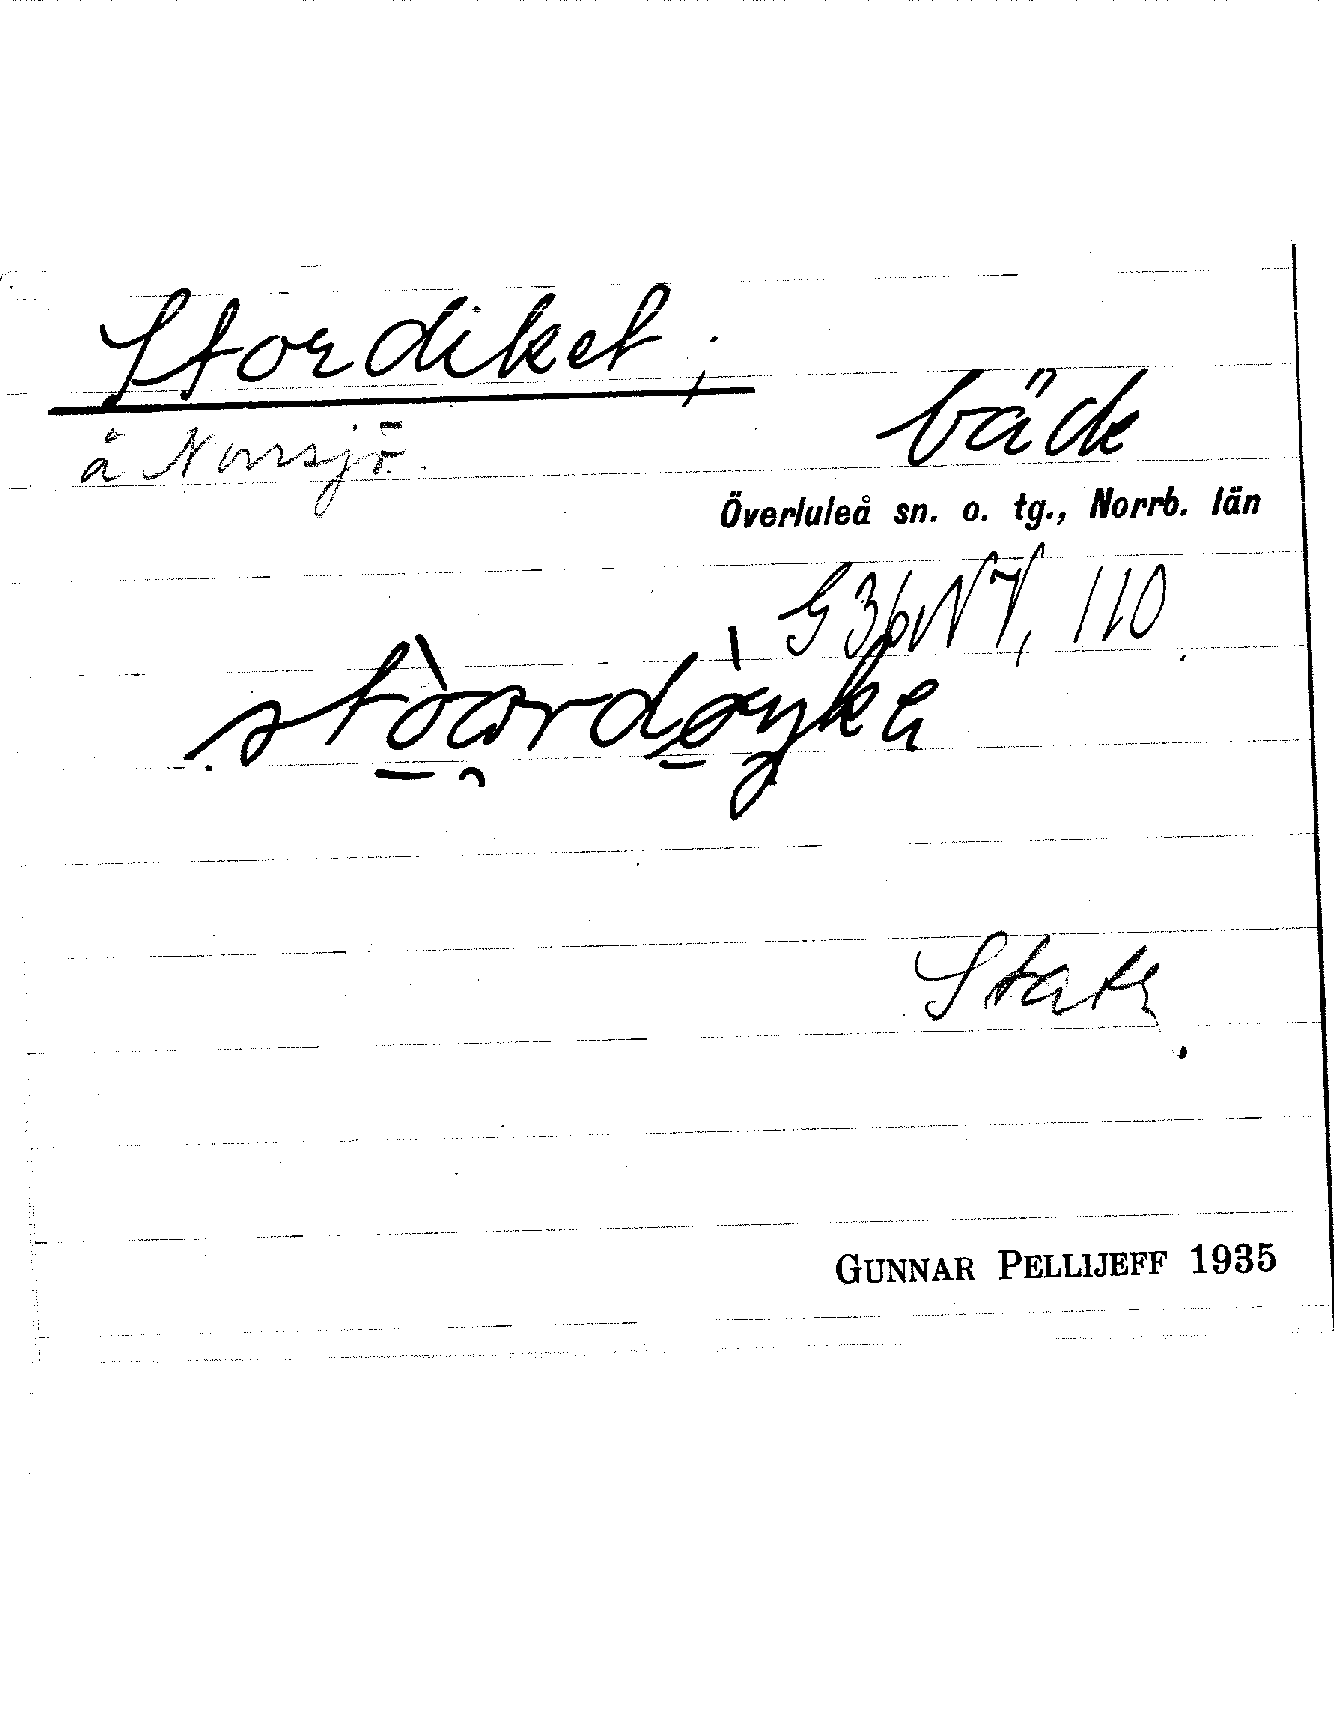 Stordiket;
bäck
å Norrsjö.
Överluleå sn. o. tg., Norrb. län
G 36 NV, 110
stòordòyka
Statk.
GUNNAR PELLIJEFF 1935